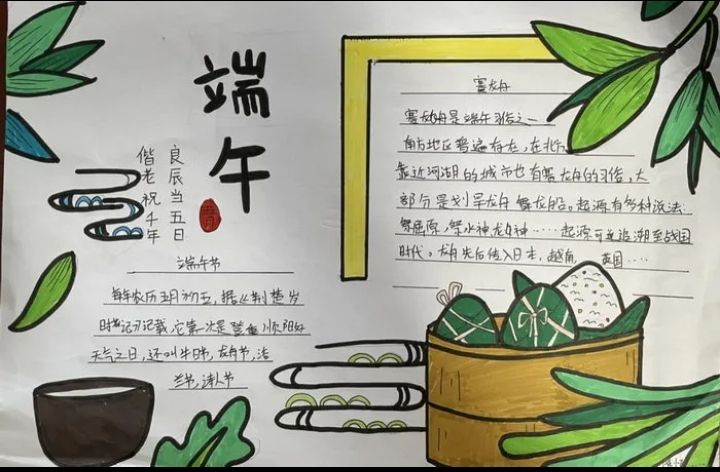 端午
良辰当五日
偕老祝千年
端午节
每年农历五月初五，据《荆楚岁
时记》记载，它第一次是登高顺阳好
天气之日，还叫午日节，龙舟节，浴
兰节，诗人节
赛龙舟
赛龙舟是端午习俗之一
南方地区普遍存在，在北方
靠近河湖的城市也有赛龙舟的习俗，大
部分是划旱龙舟舞龙船。起源有多种说法
祭屈原，祭水神龙神……起源可追溯至战国
时代。龙舟先后传入日本，越南，英国……